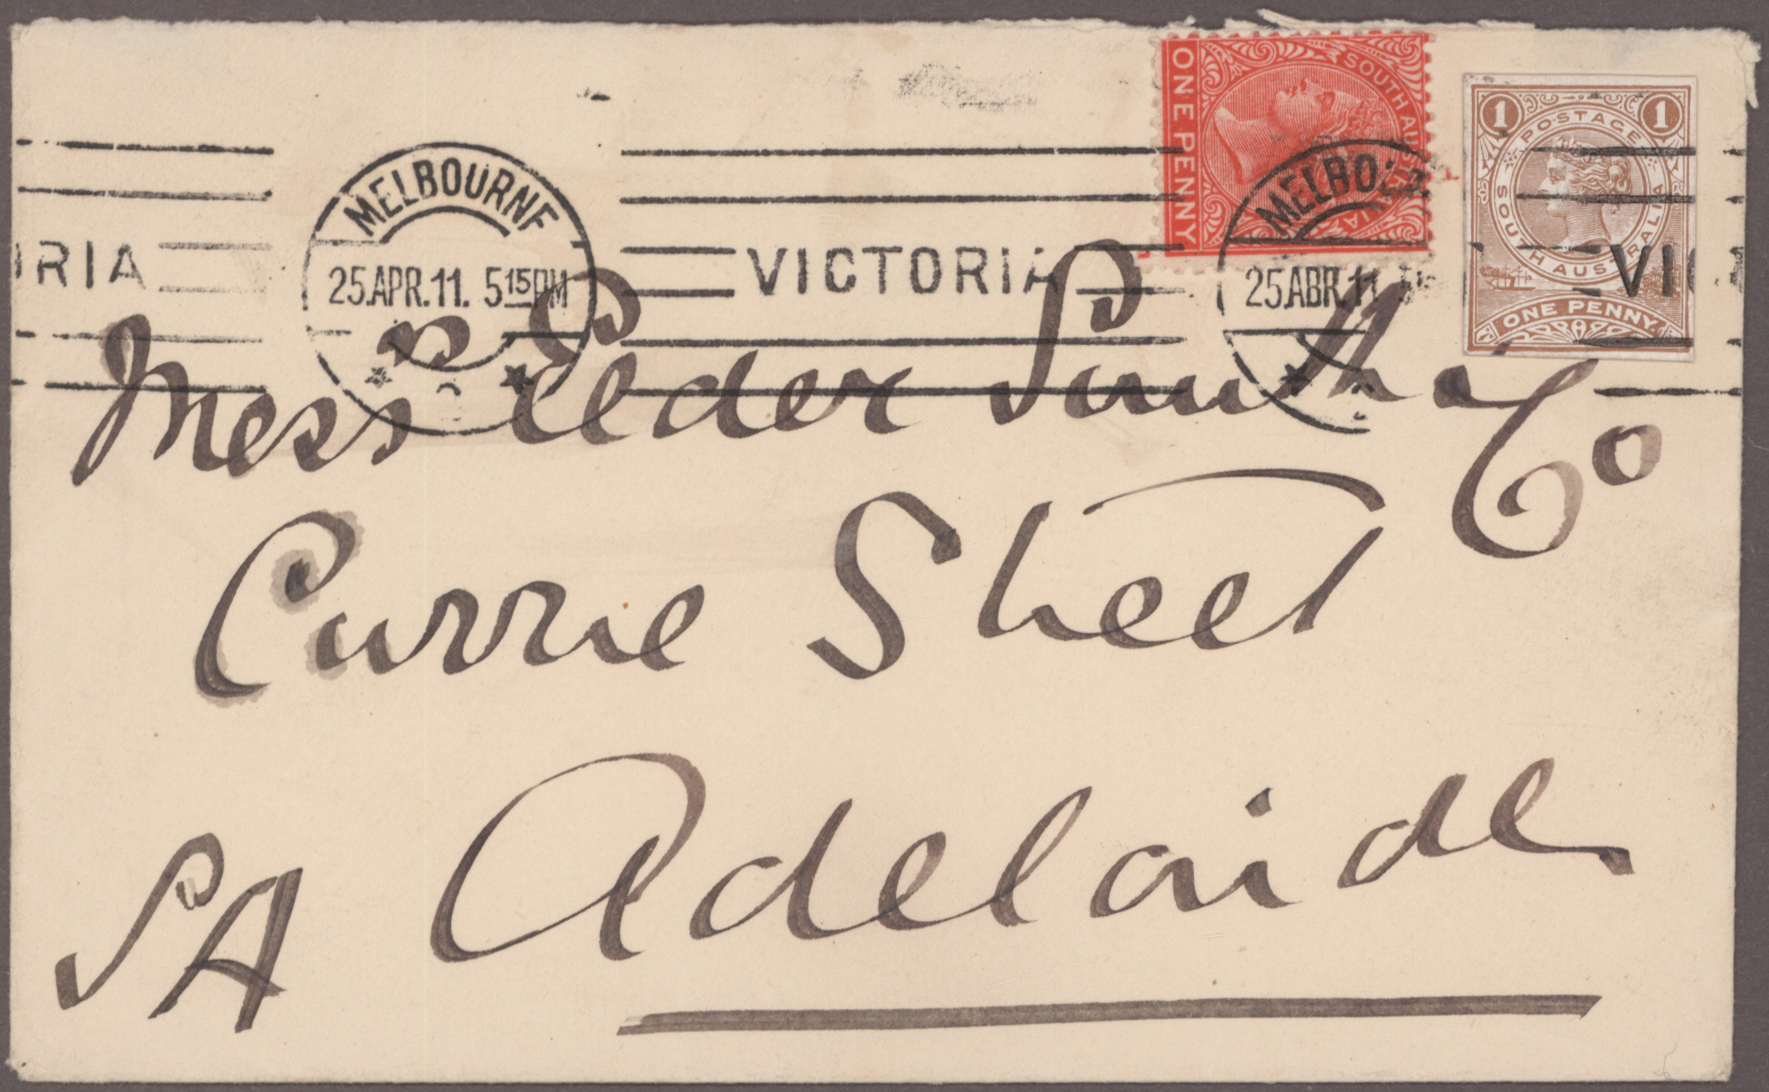 RIA
MELBOURNE
25.APR.11. 515PM
VICTORIA
MELBO
25.ABR.11
VI
SOUTH AUSTRALIA
ONE PENNY
1 1
POSTAGE
SOUTH AUSTRALIA
ONE PENNY
Messrs Elder Smith & Co
Currie Street
Adelaide
SA